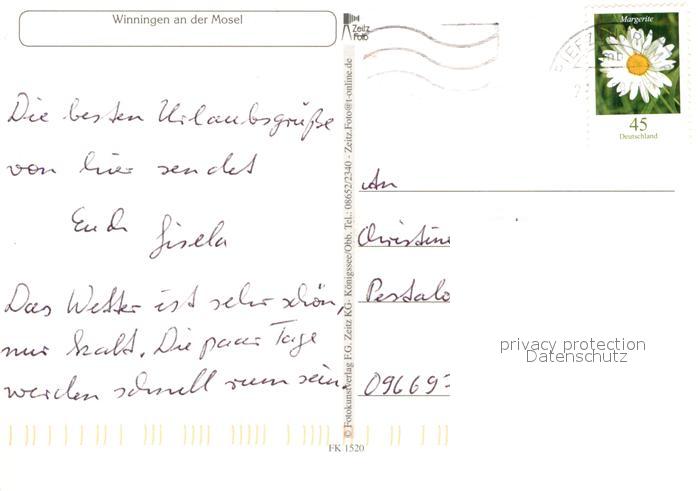 Winningen an der Mosel
Zeitz
Foto
Margerite
45
Deutschland
BRIEFZENTRUM
Die besten Urlaubsgrüße
von hier sendet
Euch Gisela
Das Wetter ist sehr schön,
nur kalt. Die paar Tage
werden schnell rum sein.
© Fotokunstverlag F.G. Zeitz KG- Königssee/Obb. Tel.: 08652/2340 - Zeitz.Foto@t-online.de
FK 1520
An
Christine
Pestalo
09669
privacy protection
Datenschutz